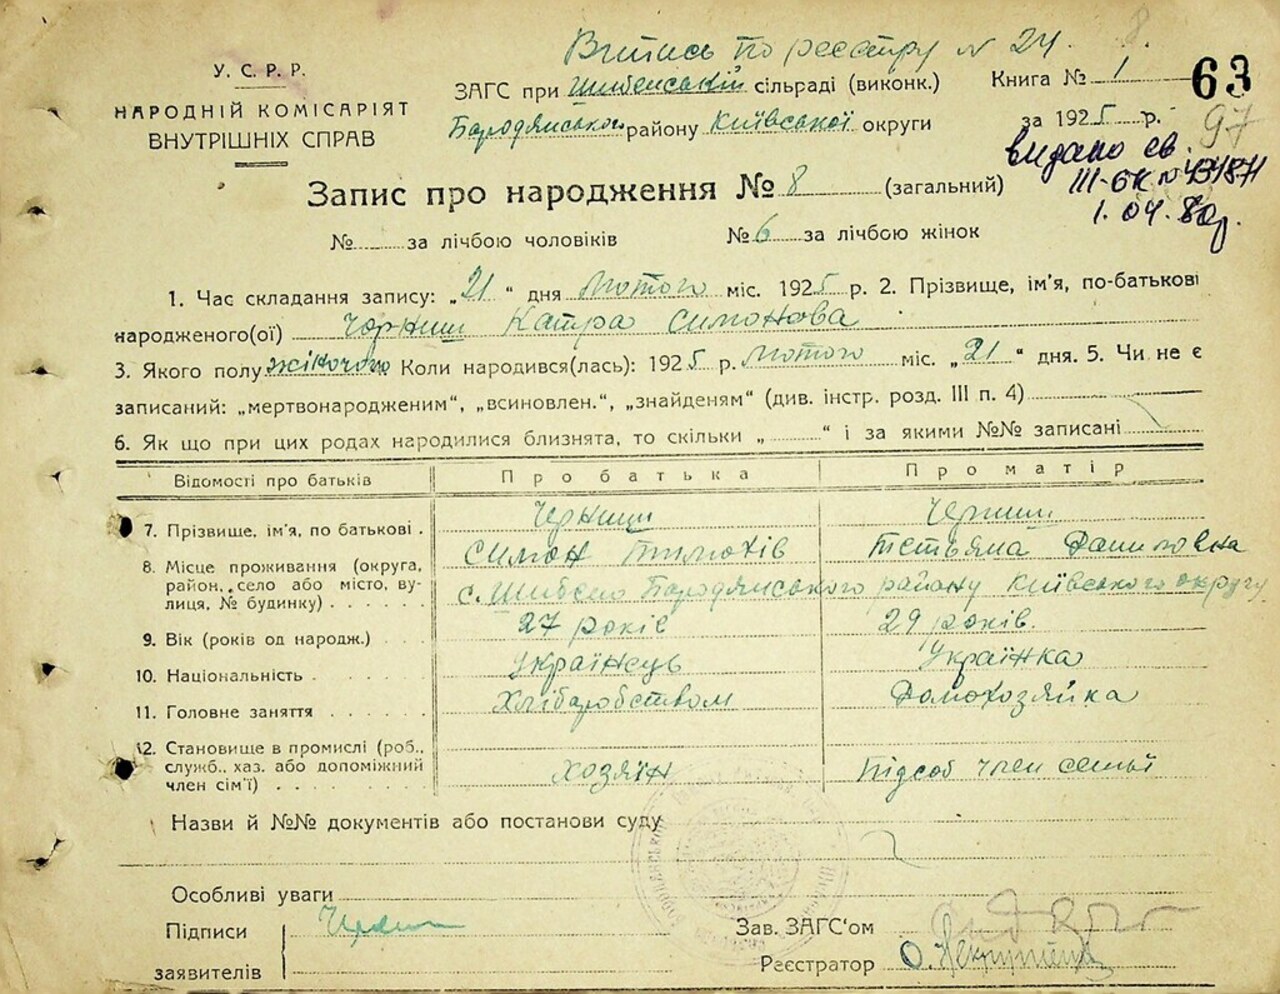 Випись по реєстру N 24. 8.
У. С. Р. Р.
НАРОДНІЙ КОМІСАРІЯТ
ВНУТРІШНІХ СПРАВ
ЗАГС при Шибенській сільраді (виконк.)
Бородянського району Київської округи
Книга № 1
63
за 1925 р.
97
видано св.
III-БК N
1. 04. 80р.
Запис про народження № 8 (загальний)
№ за лічбою чоловіків № 6 за лічбою жінок
1. Час складання запису: „21 “ дня Лютого міс. 1925 р. 2. Прізвище, ім'я, по-батькові
народженого(ої) Черниш Катра Симонова
3. Якого полу жіночого Коли народився(лась): 1925 р. Лютого міс. „21 “ дня. 5. Чи не є
записаний: „мертвонародженим“, „всиновлен.“, „знайденям“ (див. інстр. розд. III п. 4)
6. Як що при цих родах народилися близнята, то скільки „ “ і за якими №№ записані
Відомості про батьків Про батька Про матір
7. Прізвище, ім'я, по батькові . Черниш Черниш
Симон Тимохів Тетьяна Даниловна
8. Місце проживання (округа,
район, село або місто, ву-
лиця, № будинку) . . . . . . с. Шибено Бородянського району Київського округу
9. Вік (років од народж.) . . . 27 років 29 років.
10. Національність . . . . . . Українець Українка
11. Головне заняття . . . . . . Хліборобством Домохозяйка
12. Становище в промислі (роб.,
служб., хаз. або допоміжний
член сім'ї) . . . . . . . . Хозяїн Підсоб член семьї
Назви й №№ документів або постанови суду
Особливі уваги
Підписи Черниш
заявителів
Зав. ЗАГС'ом
Реєстратор О.